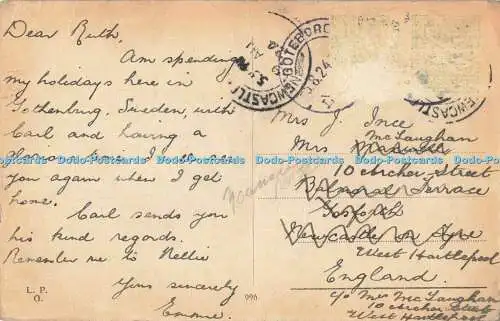 Dear Ruth,
Am spending
my holidays here in
Gothenburg, Sweden, with
Carl and having a
time. I
you again when I get
home.
Carl sends you
his kind regards.
Remember me to Nellie
Yours sincerely
Emmie.
L. P.
G.
990
GÖTEBORG
NEWCASTLE
NEWCASTLE
.8.24
Mrs J. Ince
Mrs McLaughan
10 Archer Street
Balmoral Terrace
Gosforth
Newcastle on Tyne
West Hartlepool
England.
c/o Mrs McLaughan
10 Archer Street
West Hartlepool
Dodo-Postcards Dodo-Postcards Dodo-Postcards Dodo-Postcards Dodo-Postcards